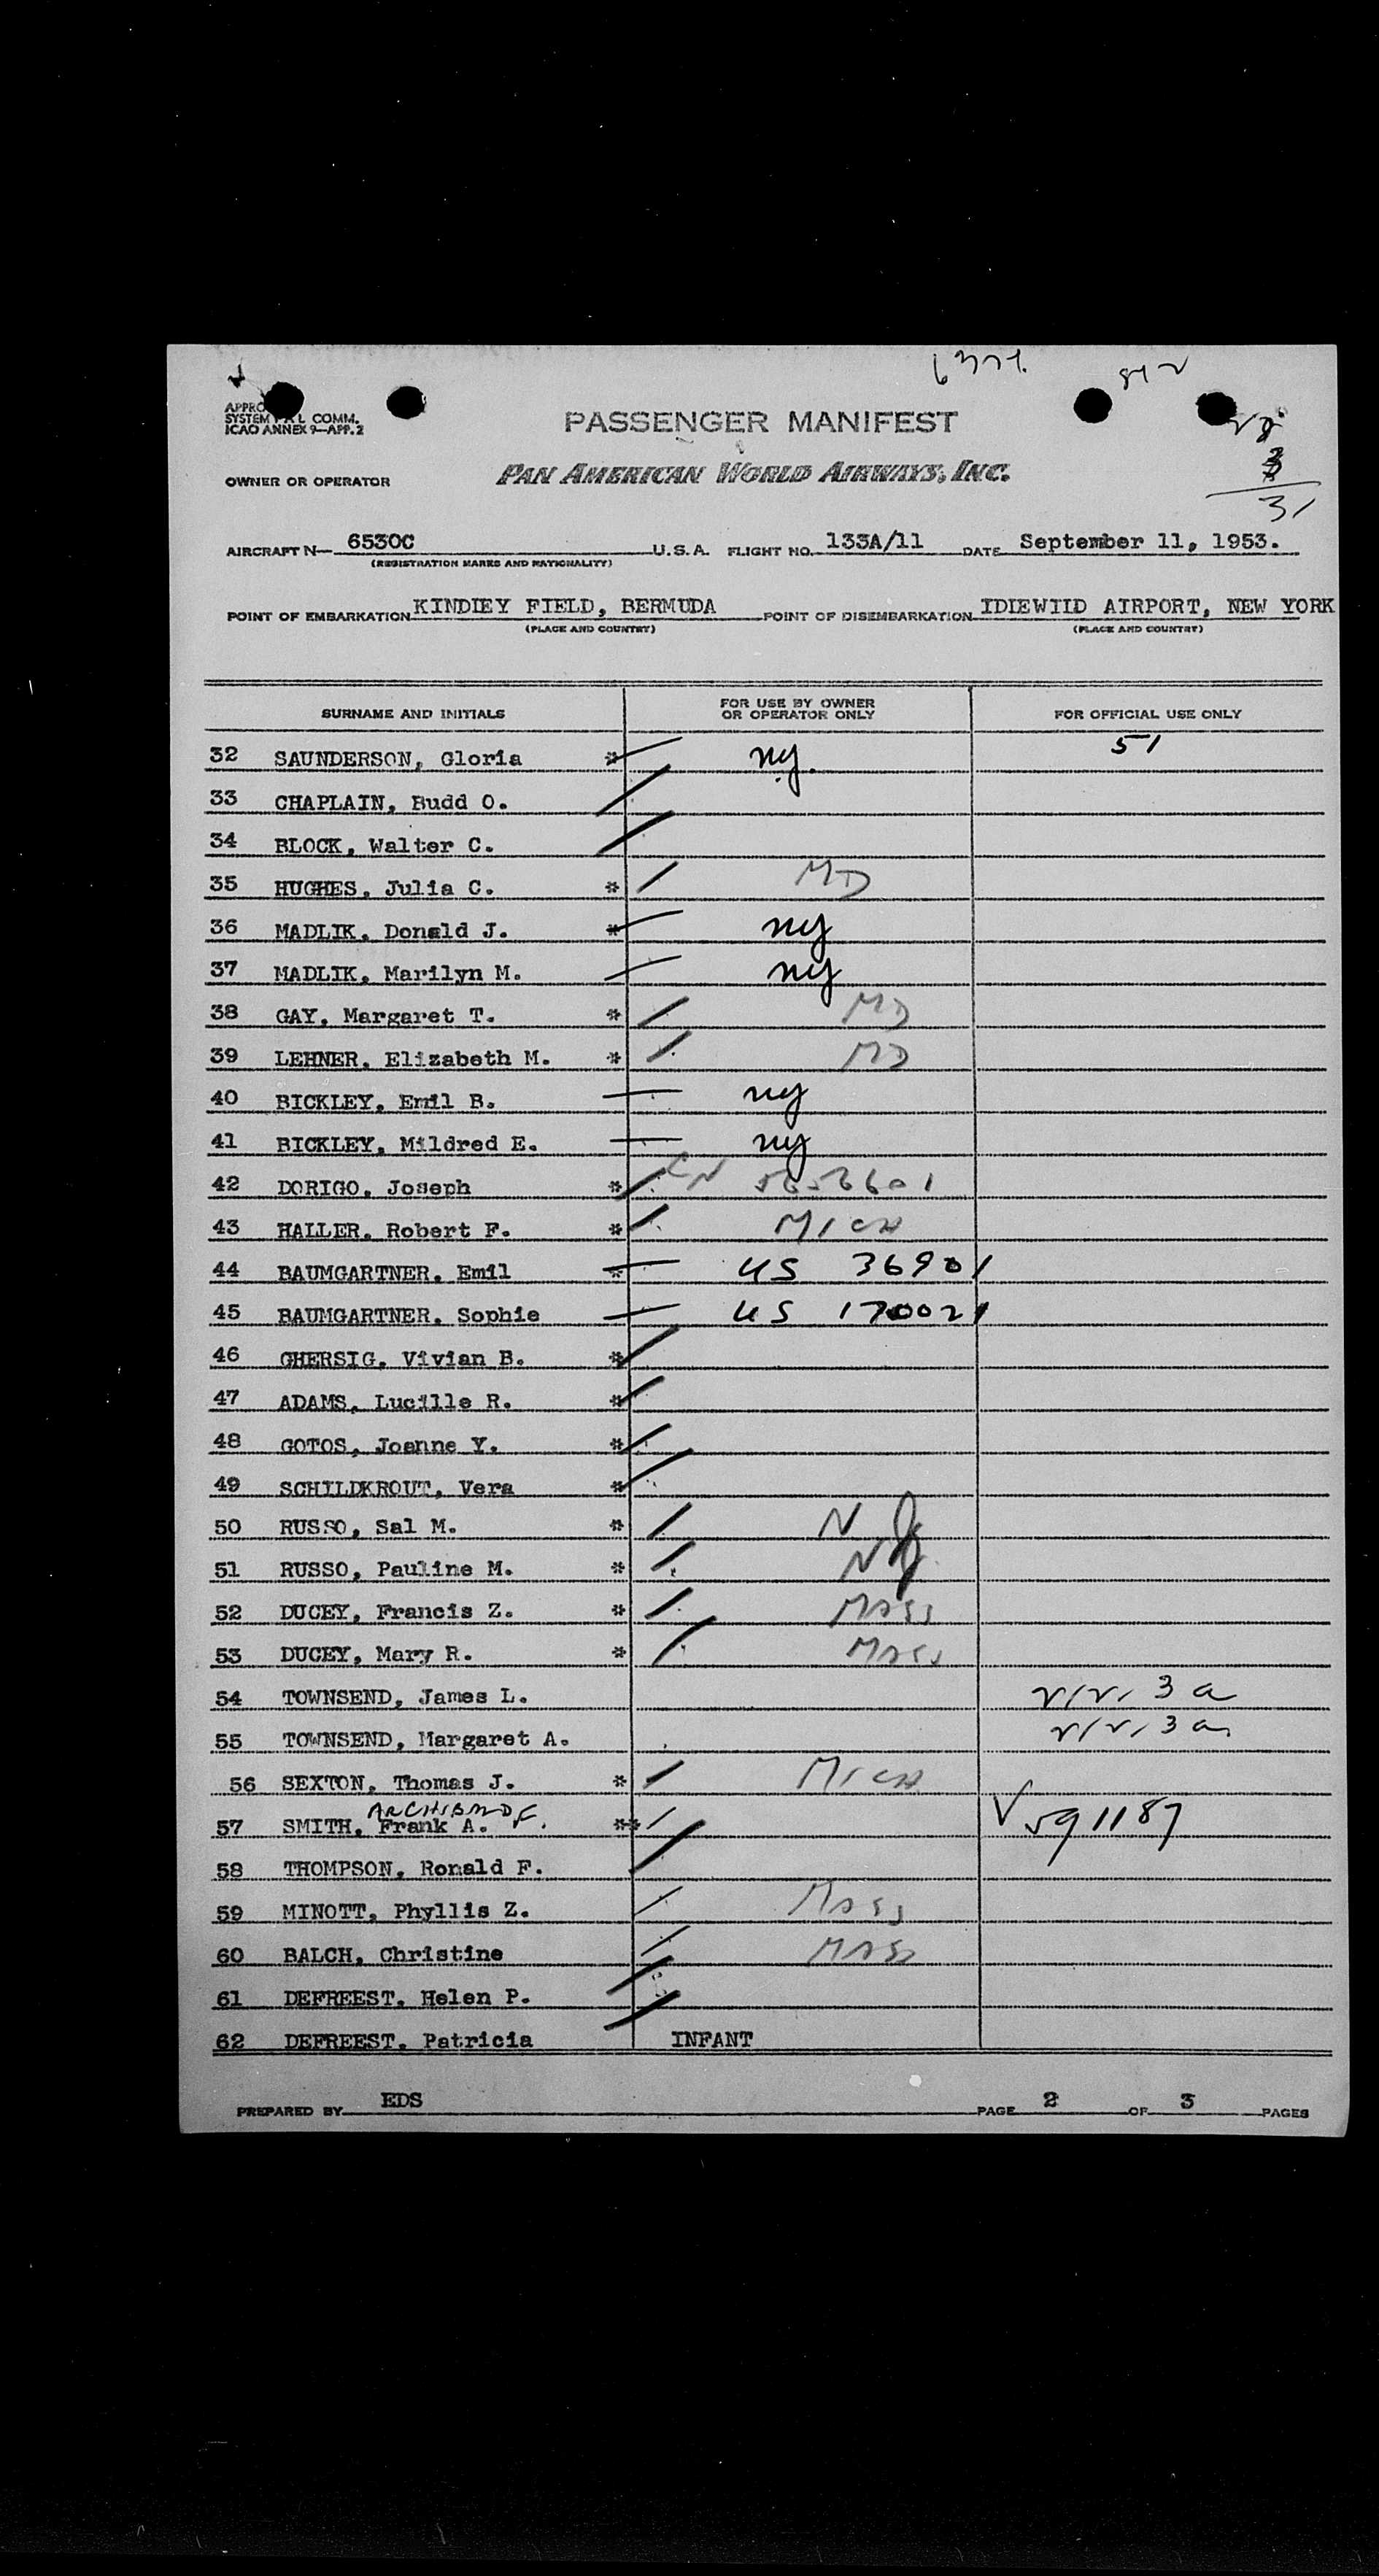 6371. 842
APPRO
SYSTEM P A L COMM.
ICAO ANNEX 9—APP. 2
PASSENGER MANIFEST
28
3
31
OWNER OR OPERATOR PAN AMERICAN WORLD AIRWAYS, INC.
AIRCRAFT N— 6530C U.S.A. FLIGHT NO. 133A/11 DATE September 11, 1953.
(REGISTRATION MARKS AND NATIONALITY)
POINT OF EMBARKATION KINDIEY FIELD, BERMUDA POINT OF DISEMBARKATION IDIEWIID AIRPORT, NEW YORK
(PLACE AND COUNTRY) (PLACE AND COUNTRY)
SURNAME AND INITIALS FOR USE BY OWNER OR OPERATOR ONLY FOR OFFICIAL USE ONLY
32 SAUNDERSON, Gloria * ny. 51
33 CHAPLAIN, Budd O.
34 BLOCK, Walter C.
35 HUGHES, Julia C. * MD
36 MADLIK, Donald J. * ny
37 MADLIK, Marilyn M. ny
38 GAY, Margaret T. * MD
39 LEHNER, Elizabeth M. * MD
40 BICKLEY, Emil B. ny
41 BICKLEY, Mildred E. ny
42 DORIGO, Joseph * CN 5656601
43 HALLER, Robert F. * MICH
44 BAUMGARTNER, Emil * US 36901
45 BAUMGARTNER, Sophie US 170021
46 GHERSIG, Vivian B. *
47 ADAMS, Lucille R. *
48 GOTOS, Joanne Y. *
49 SCHILDKROUT, Vera *
50 RUSSO, Sal M. * NJ
51 RUSSO, Pauline M. * NJ
52 DUCEY, Francis Z. * MASS
53 DUCEY, Mary R. * MASS
54 TOWNSEND, James L. 3 a
55 TOWNSEND, Margaret A. 3 a
56 SEXTON, Thomas J. * MICH
ARCHIBALD F.
57 SMITH, Frank A. ** V 591187
58 THOMPSON, Ronald F.
59 MINOTT, Phyllis Z. MASS
60 BALCH, Christine MASS
61 DEFREEST, Helen P.
62 DEFREEST, Patricia INFANT
PREPARED BY EDS PAGE 2 OF 3 PAGES